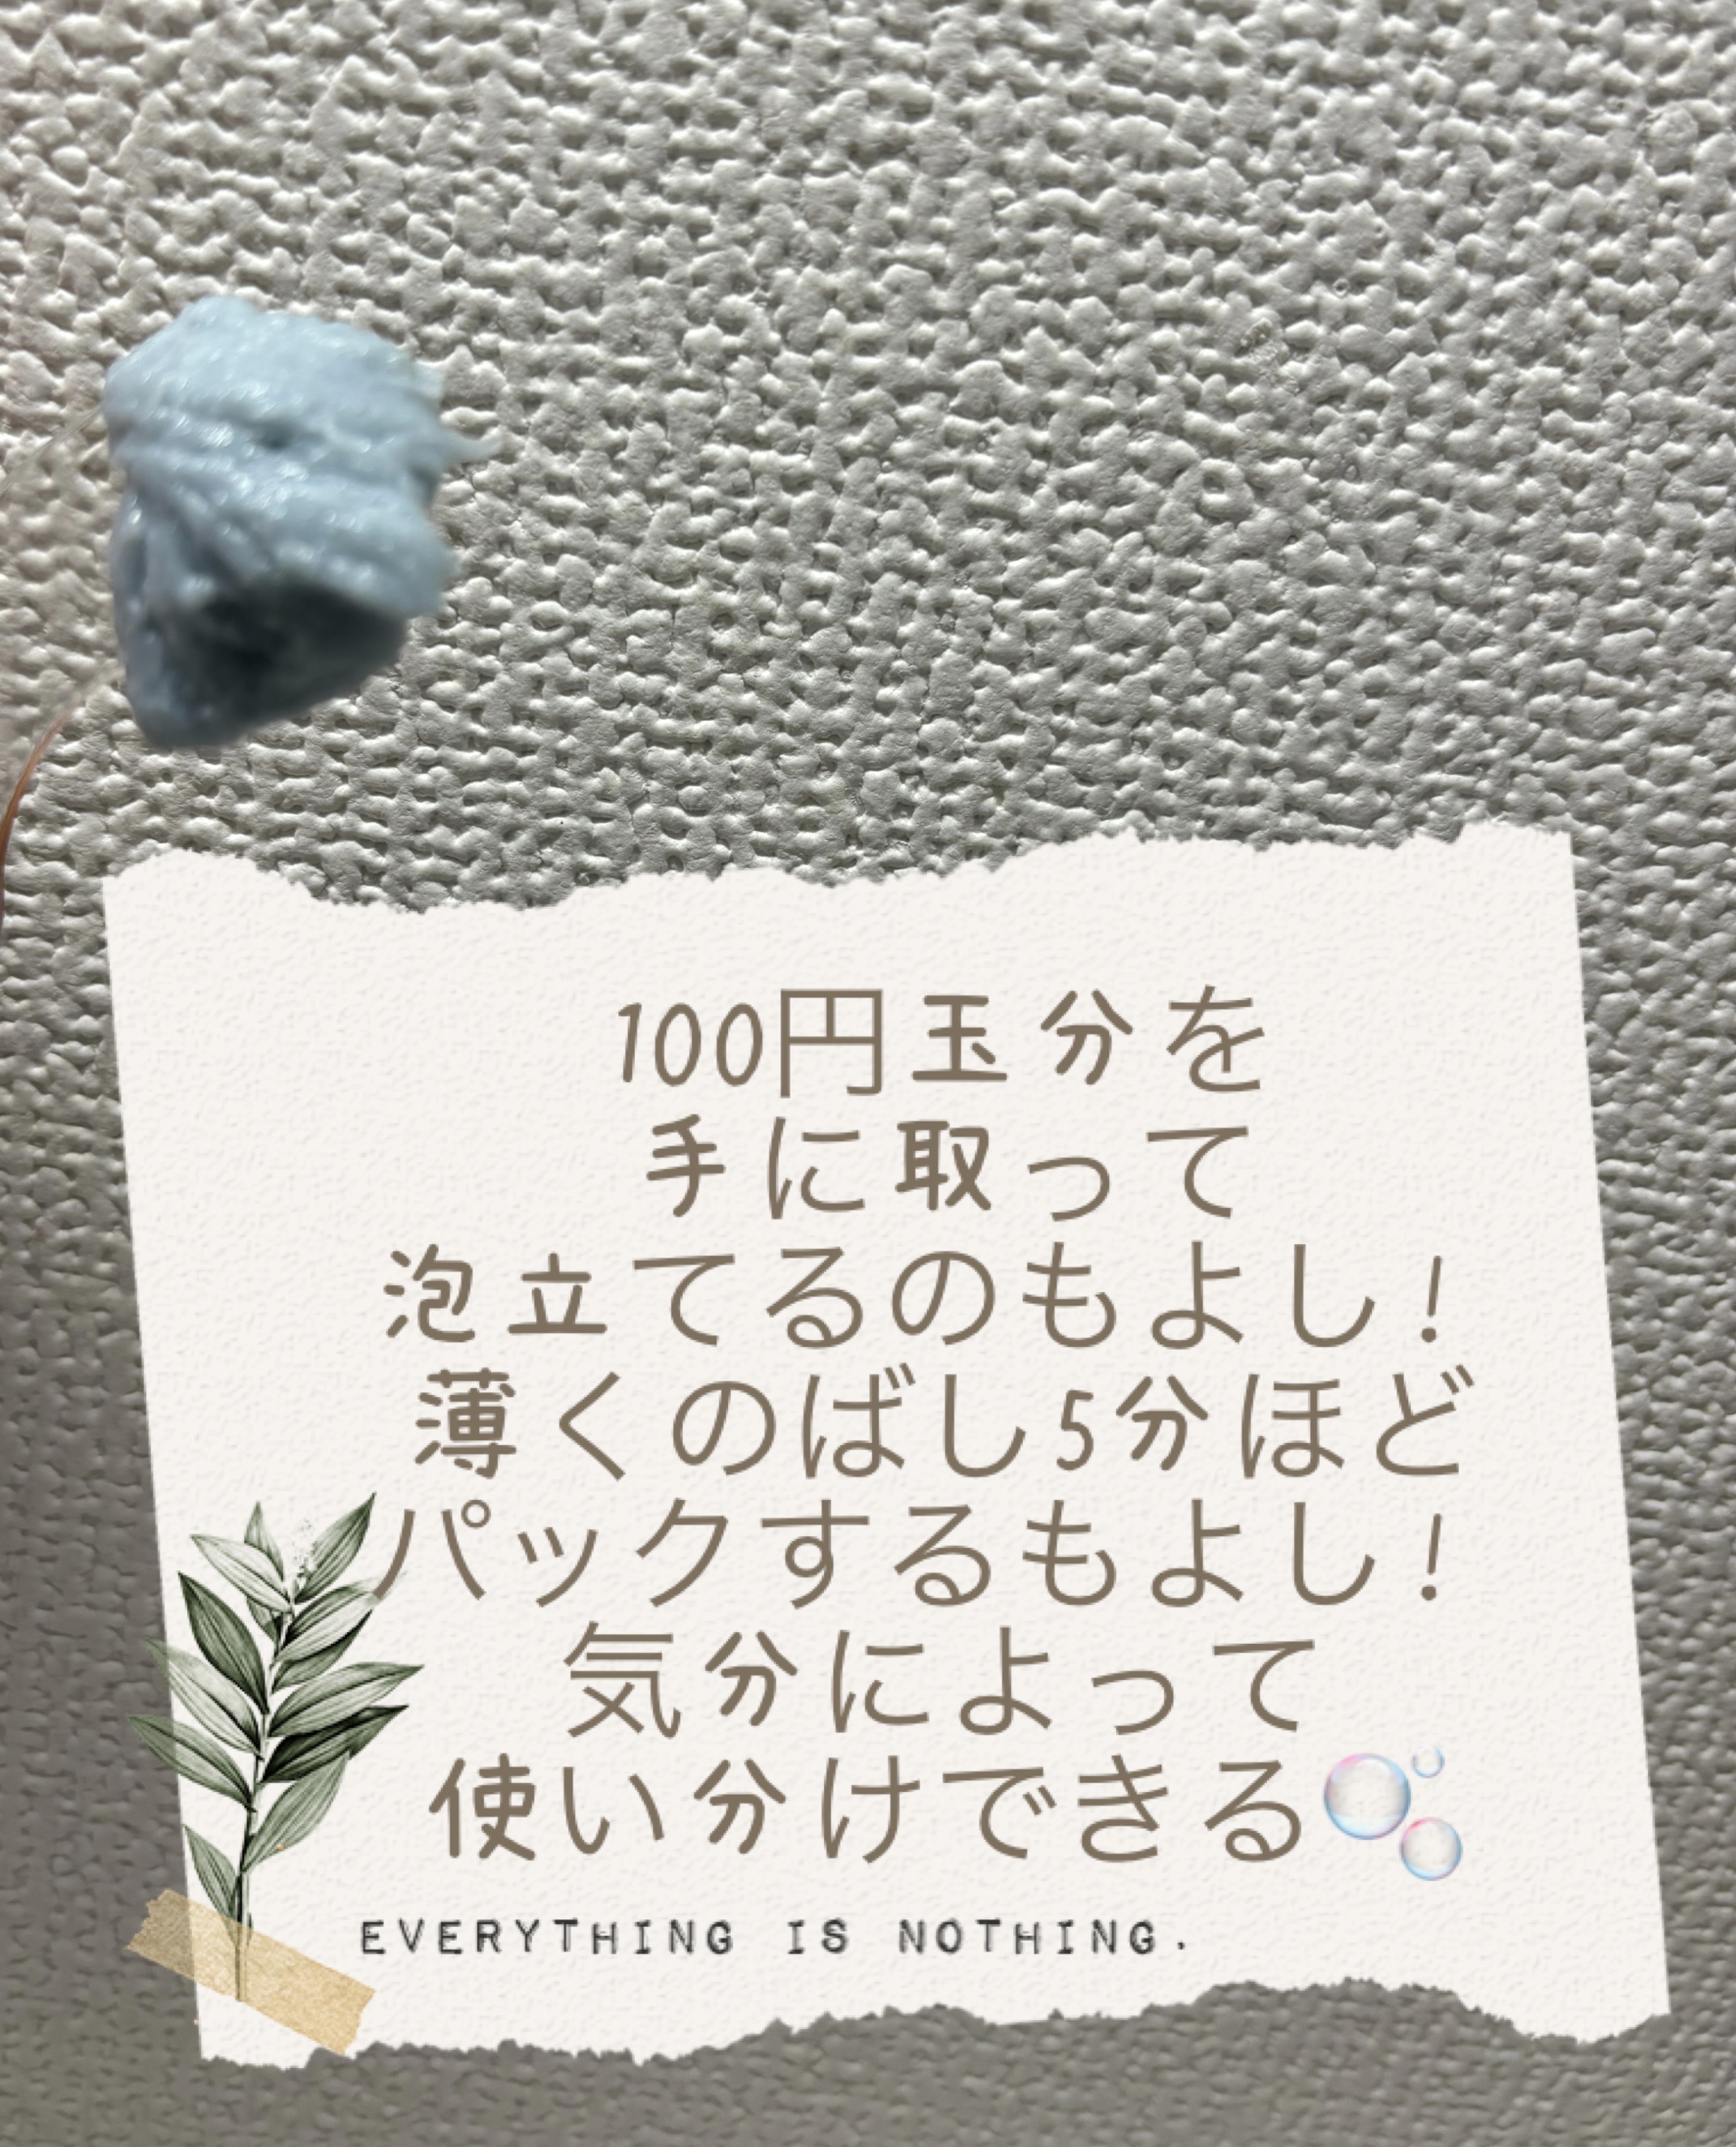 100円玉分を
手に取って
泡立てるのもよし!
薄くのばし5分ほど
パックするもよし!
気分によって
使い分けできる🫧
EVERYTHING IS NOTHING.